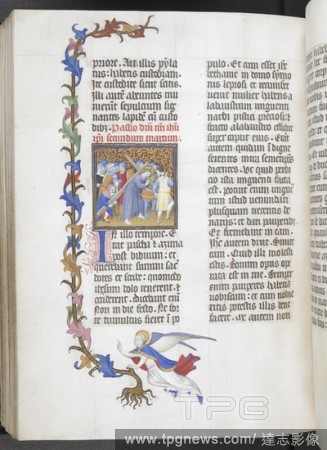 priore. Ait illis pyla
tus: habetis custodiam.
Ite custodite sicut scitis.
Illi autē abeuntes mu
nierunt sepulcrum sig
nantes lapidē cū custo
dibz. Passio dñi nri ihu
xpi secundum marcum.
In illo tempore. E
rat pascha et azima
post biduum: et
querebant summi sacer
dotes et scribe: quomodo
ihesum dolo tenerent: et
occiderent. Dicebant eni
Non in die festo. Ne for
te tumultus fieret i po
pulo. Et cum esset ihs
bethanie in domo symo
nis leprosi et recumberet
uenit mulier habens a
labaustrum unguenti
nardi pistici preciosi: et
fracto alabaustro effudit
super caput eius. Erāt
autem quidam idigne
ferentes intra semetipsos
dicentes. Ut quid perdi
cio ista unguenti facta
est. Poterat enim unguē
tum istud uenundari
plusquam trecentis de
nariis: et dari pauperibz.
Et fremebant in eam.
Ihc autem dixit. Sinite
eam. Quid illi molesti
estis. Bonum opus opera
ta est in me. Semper
enim pauperes habetis
uobiscum: et cum uolue
ritis potestis illis bene
facere. Me autem non
TPG
www.tpgnews.com/ 達志影像